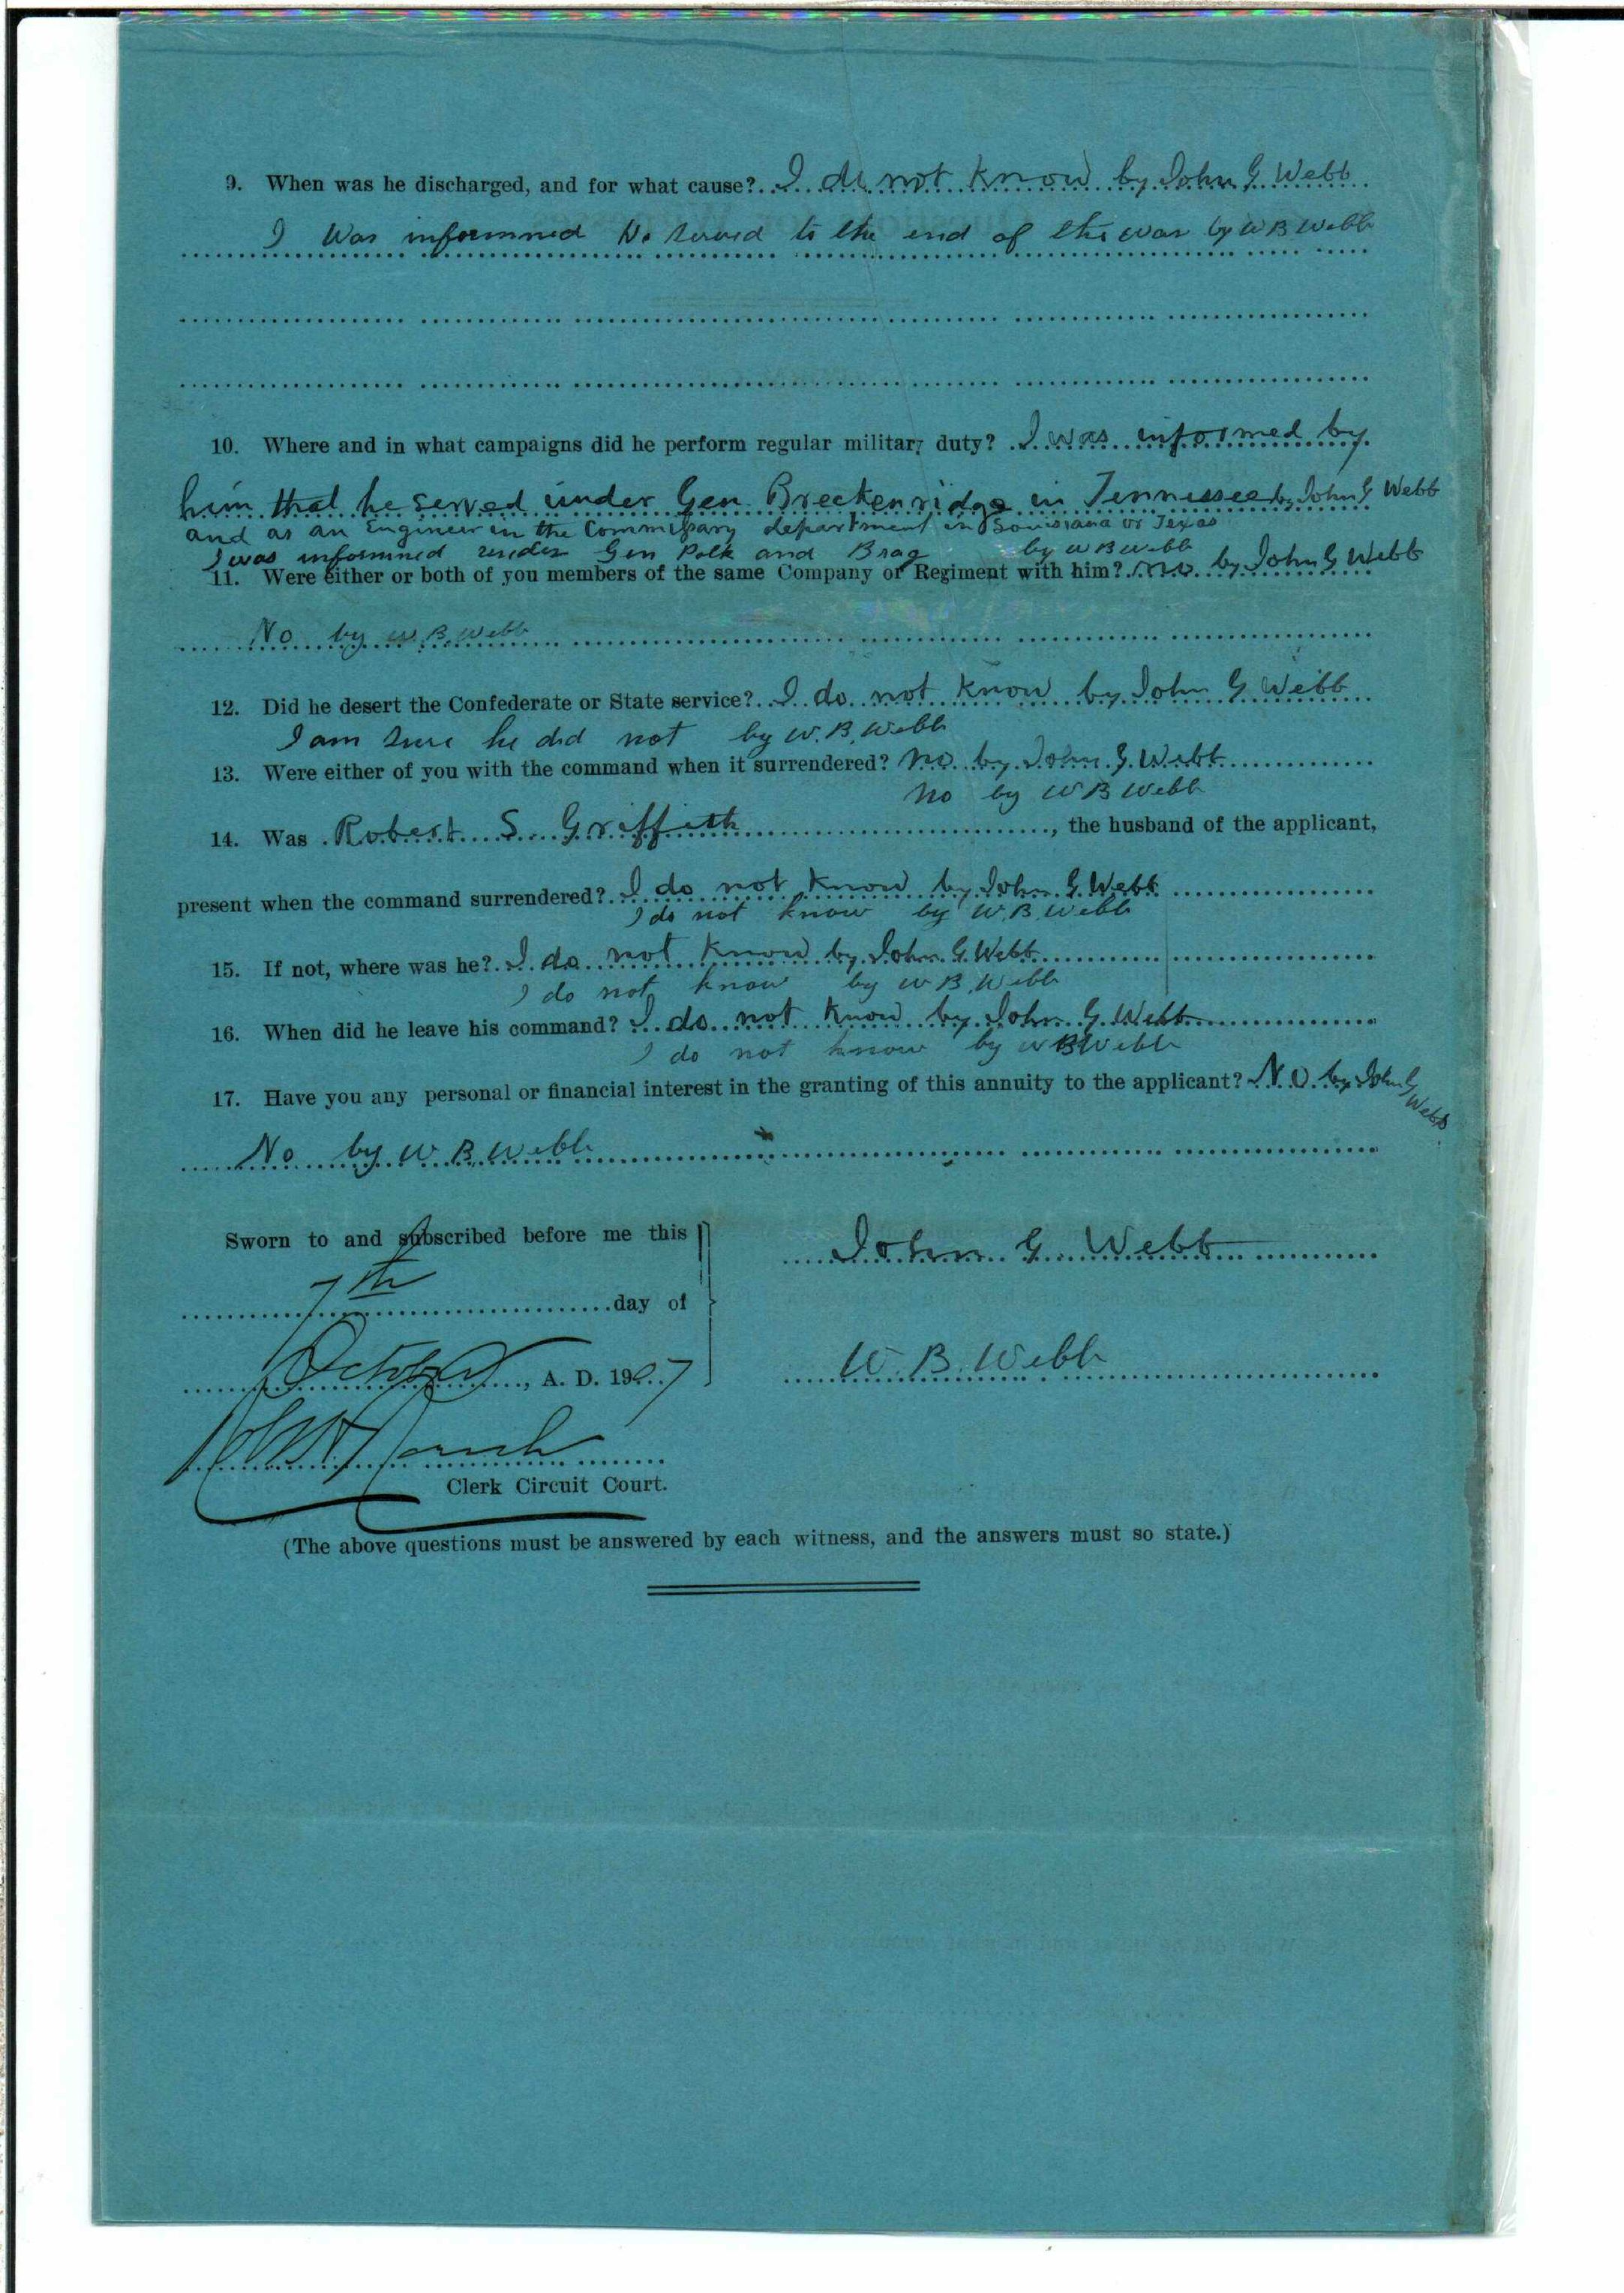 9. When was he discharged, and for what cause? I do not know by John G Webb
I Was informned He served to the end of the war by W B Webb
10. Where and in what campaigns did he perform regular military duty? I was informed by
him that he served under Gen Breckenridge in Tennessee by John G Webb
and as an Engineer in the Commissary department in Louisiana or Texas
I was informned under Gen Polk and Brag by W B Webb
11. Were either or both of you members of the same Company or Regiment with him? No by John G Webb
No by W. B. Webb
12. Did he desert the Confederate or State service? I do not know by John G Webb
I am sure he did not by W. B. Webb
13. Were either of you with the command when it surrendered? No by John G. Webb
No by W B Webb
14. Was Robert S. Griffith, the husband of the applicant,
present when the command surrendered? I do not know by John G. Webb
I do not know by W. B. Webb
15. If not, where was he? I do not know by John G Webb
I do not know by W B. Webb
16. When did he leave his command? I do not know by John G. Webb
I do not know by W B Webb
17. Have you any personal or financial interest in the granting of this annuity to the applicant? NO by John G
Webb
No by W B. Webb
Sworn to and subscribed before me this
John G. Webb
7th day of
October, A. D. 1907
W. B. Webb
Clerk Circuit Court.
(The above questions must be answered by each witness, and the answers must so state.)